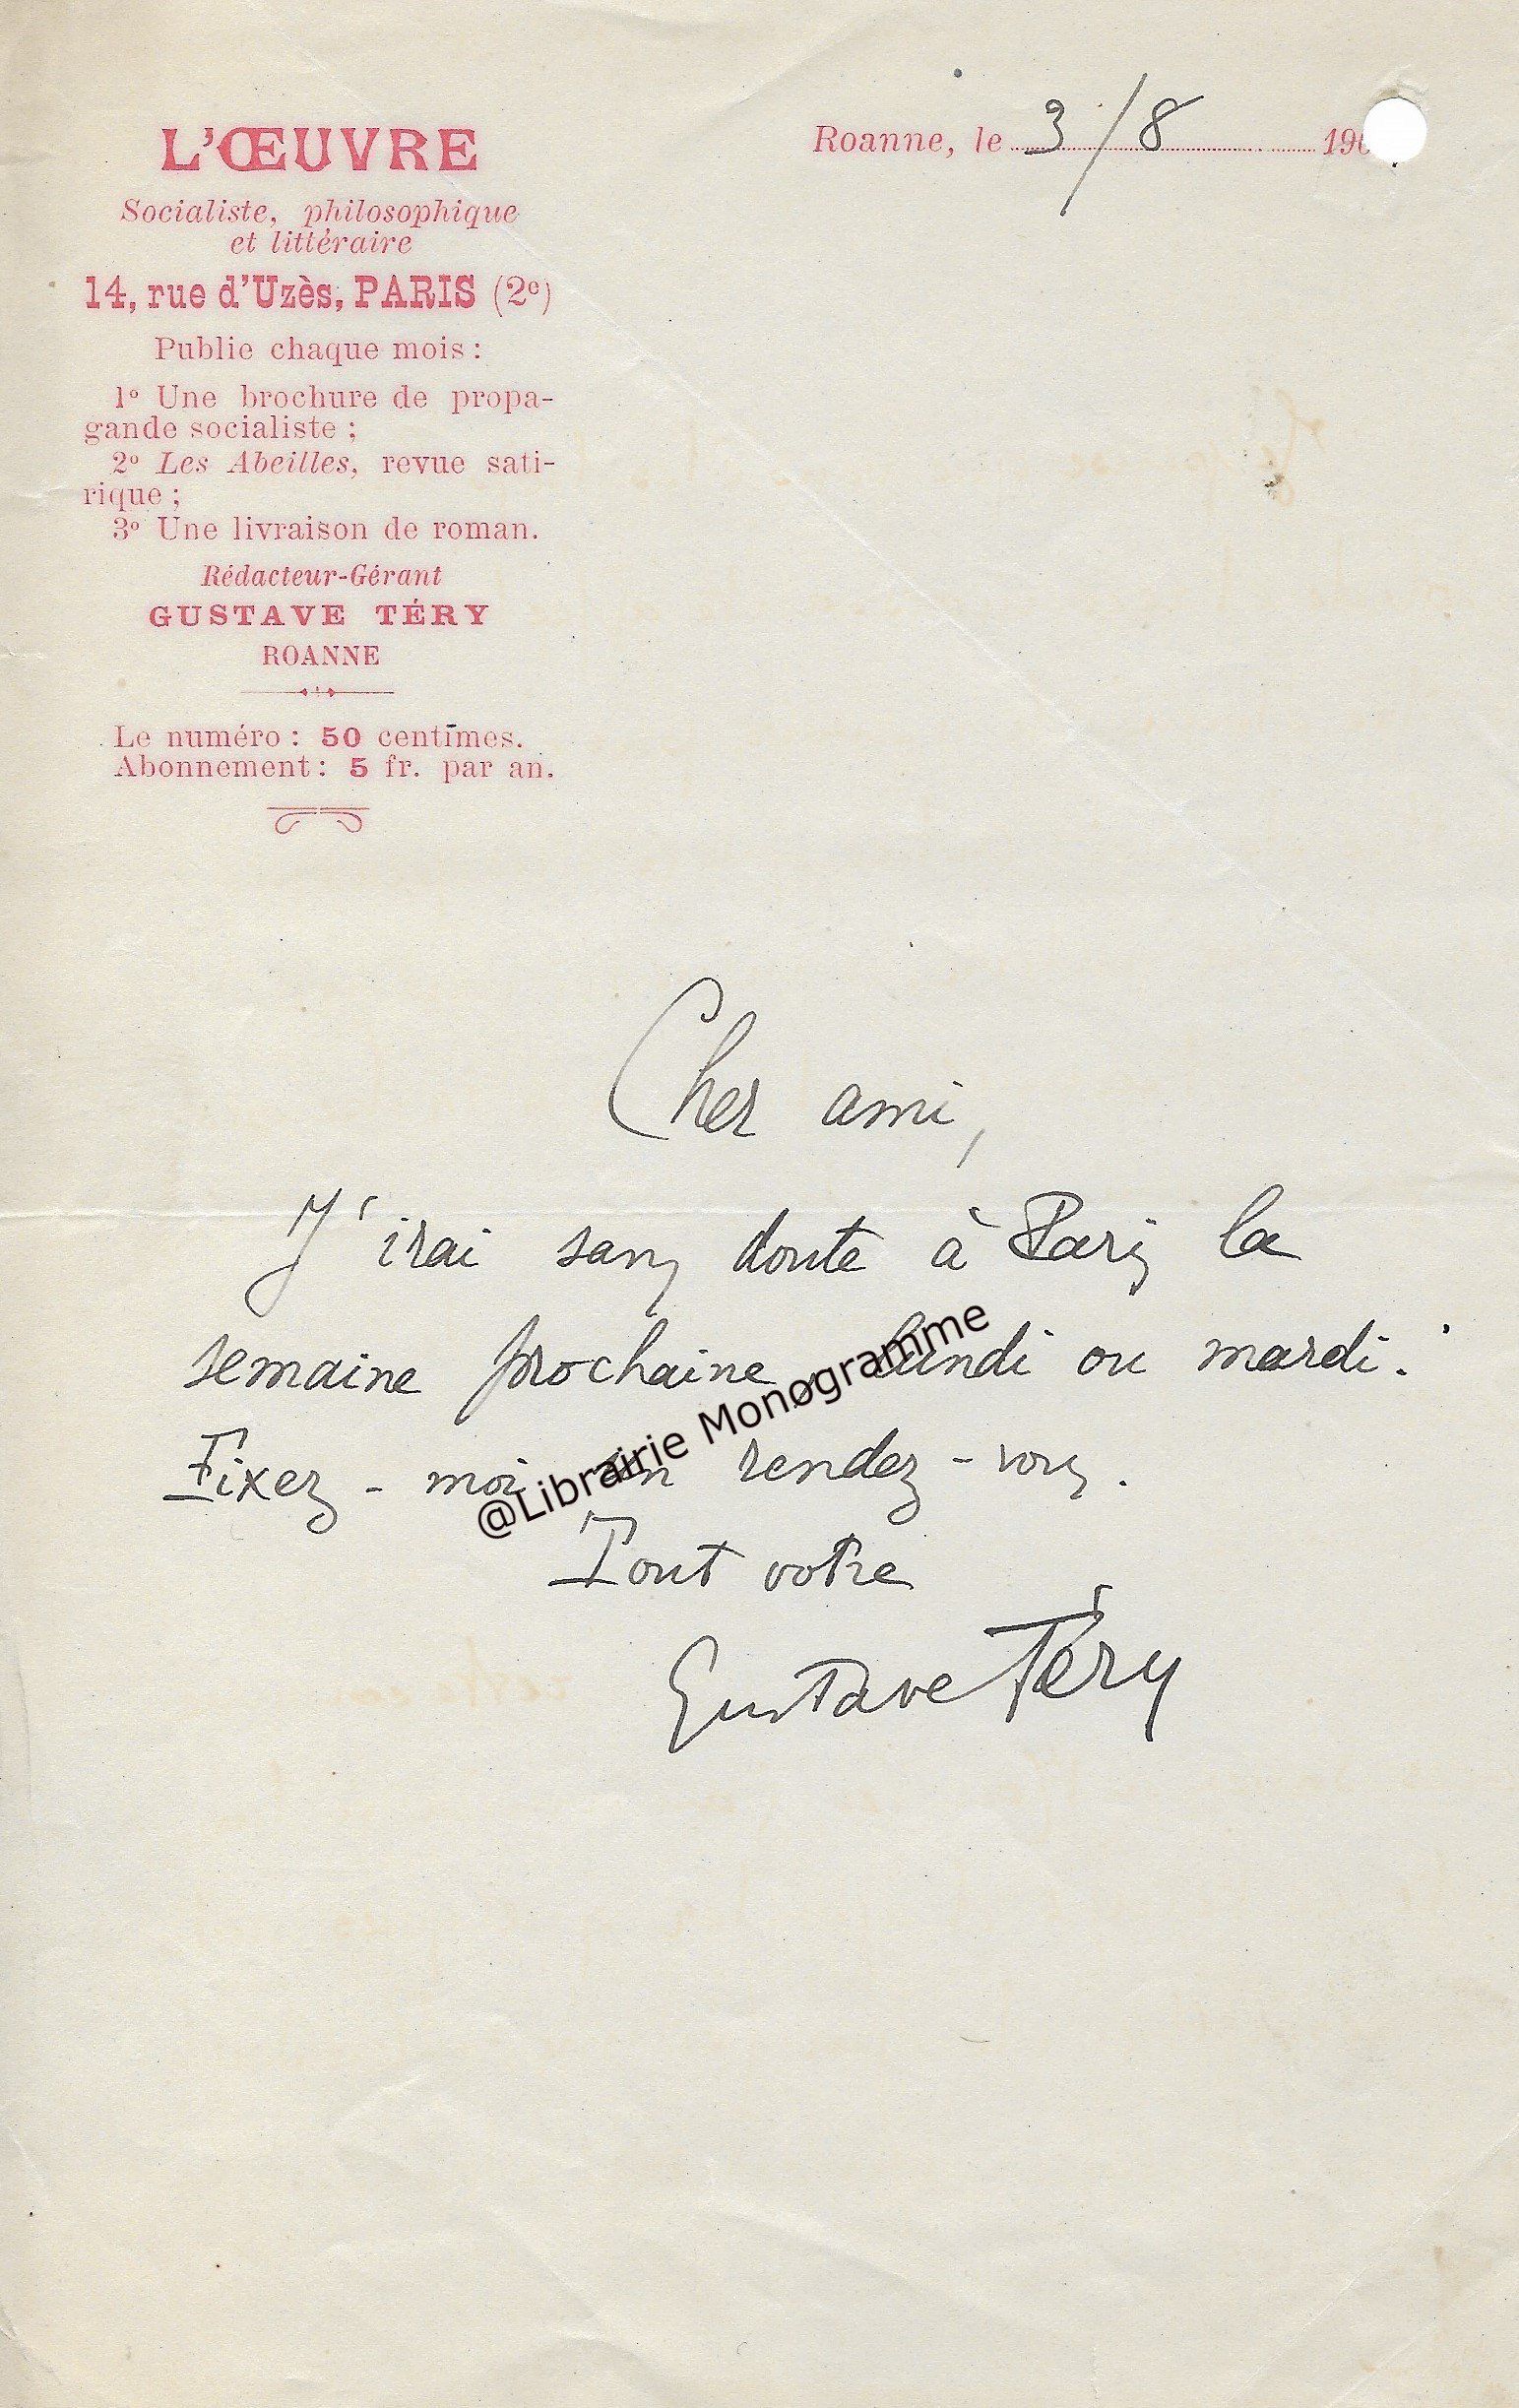 L'ŒUVRE
Socialiste, philosophique
et littéraire
14, rue d'Uzès, PARIS (2e)
Publie chaque mois :
1o Une brochure de propa-
gande socialiste ;
2o Les Abeilles, revue sati-
rique ;
3o Une livraison de roman.
Rédacteur-Gérant
GUSTAVE TÉRY
ROANNE
Le numéro : 50 centimes.
Abonnement : 5 fr. par an.
Roanne, le 3/8 190
Cher ami,
J'irai sans doute à Paris la
semaine prochaine, lundi ou mardi.
Fixez-moi un rendez-vous.
Tout votre
Gustave Téry
@Librairie Monogramme